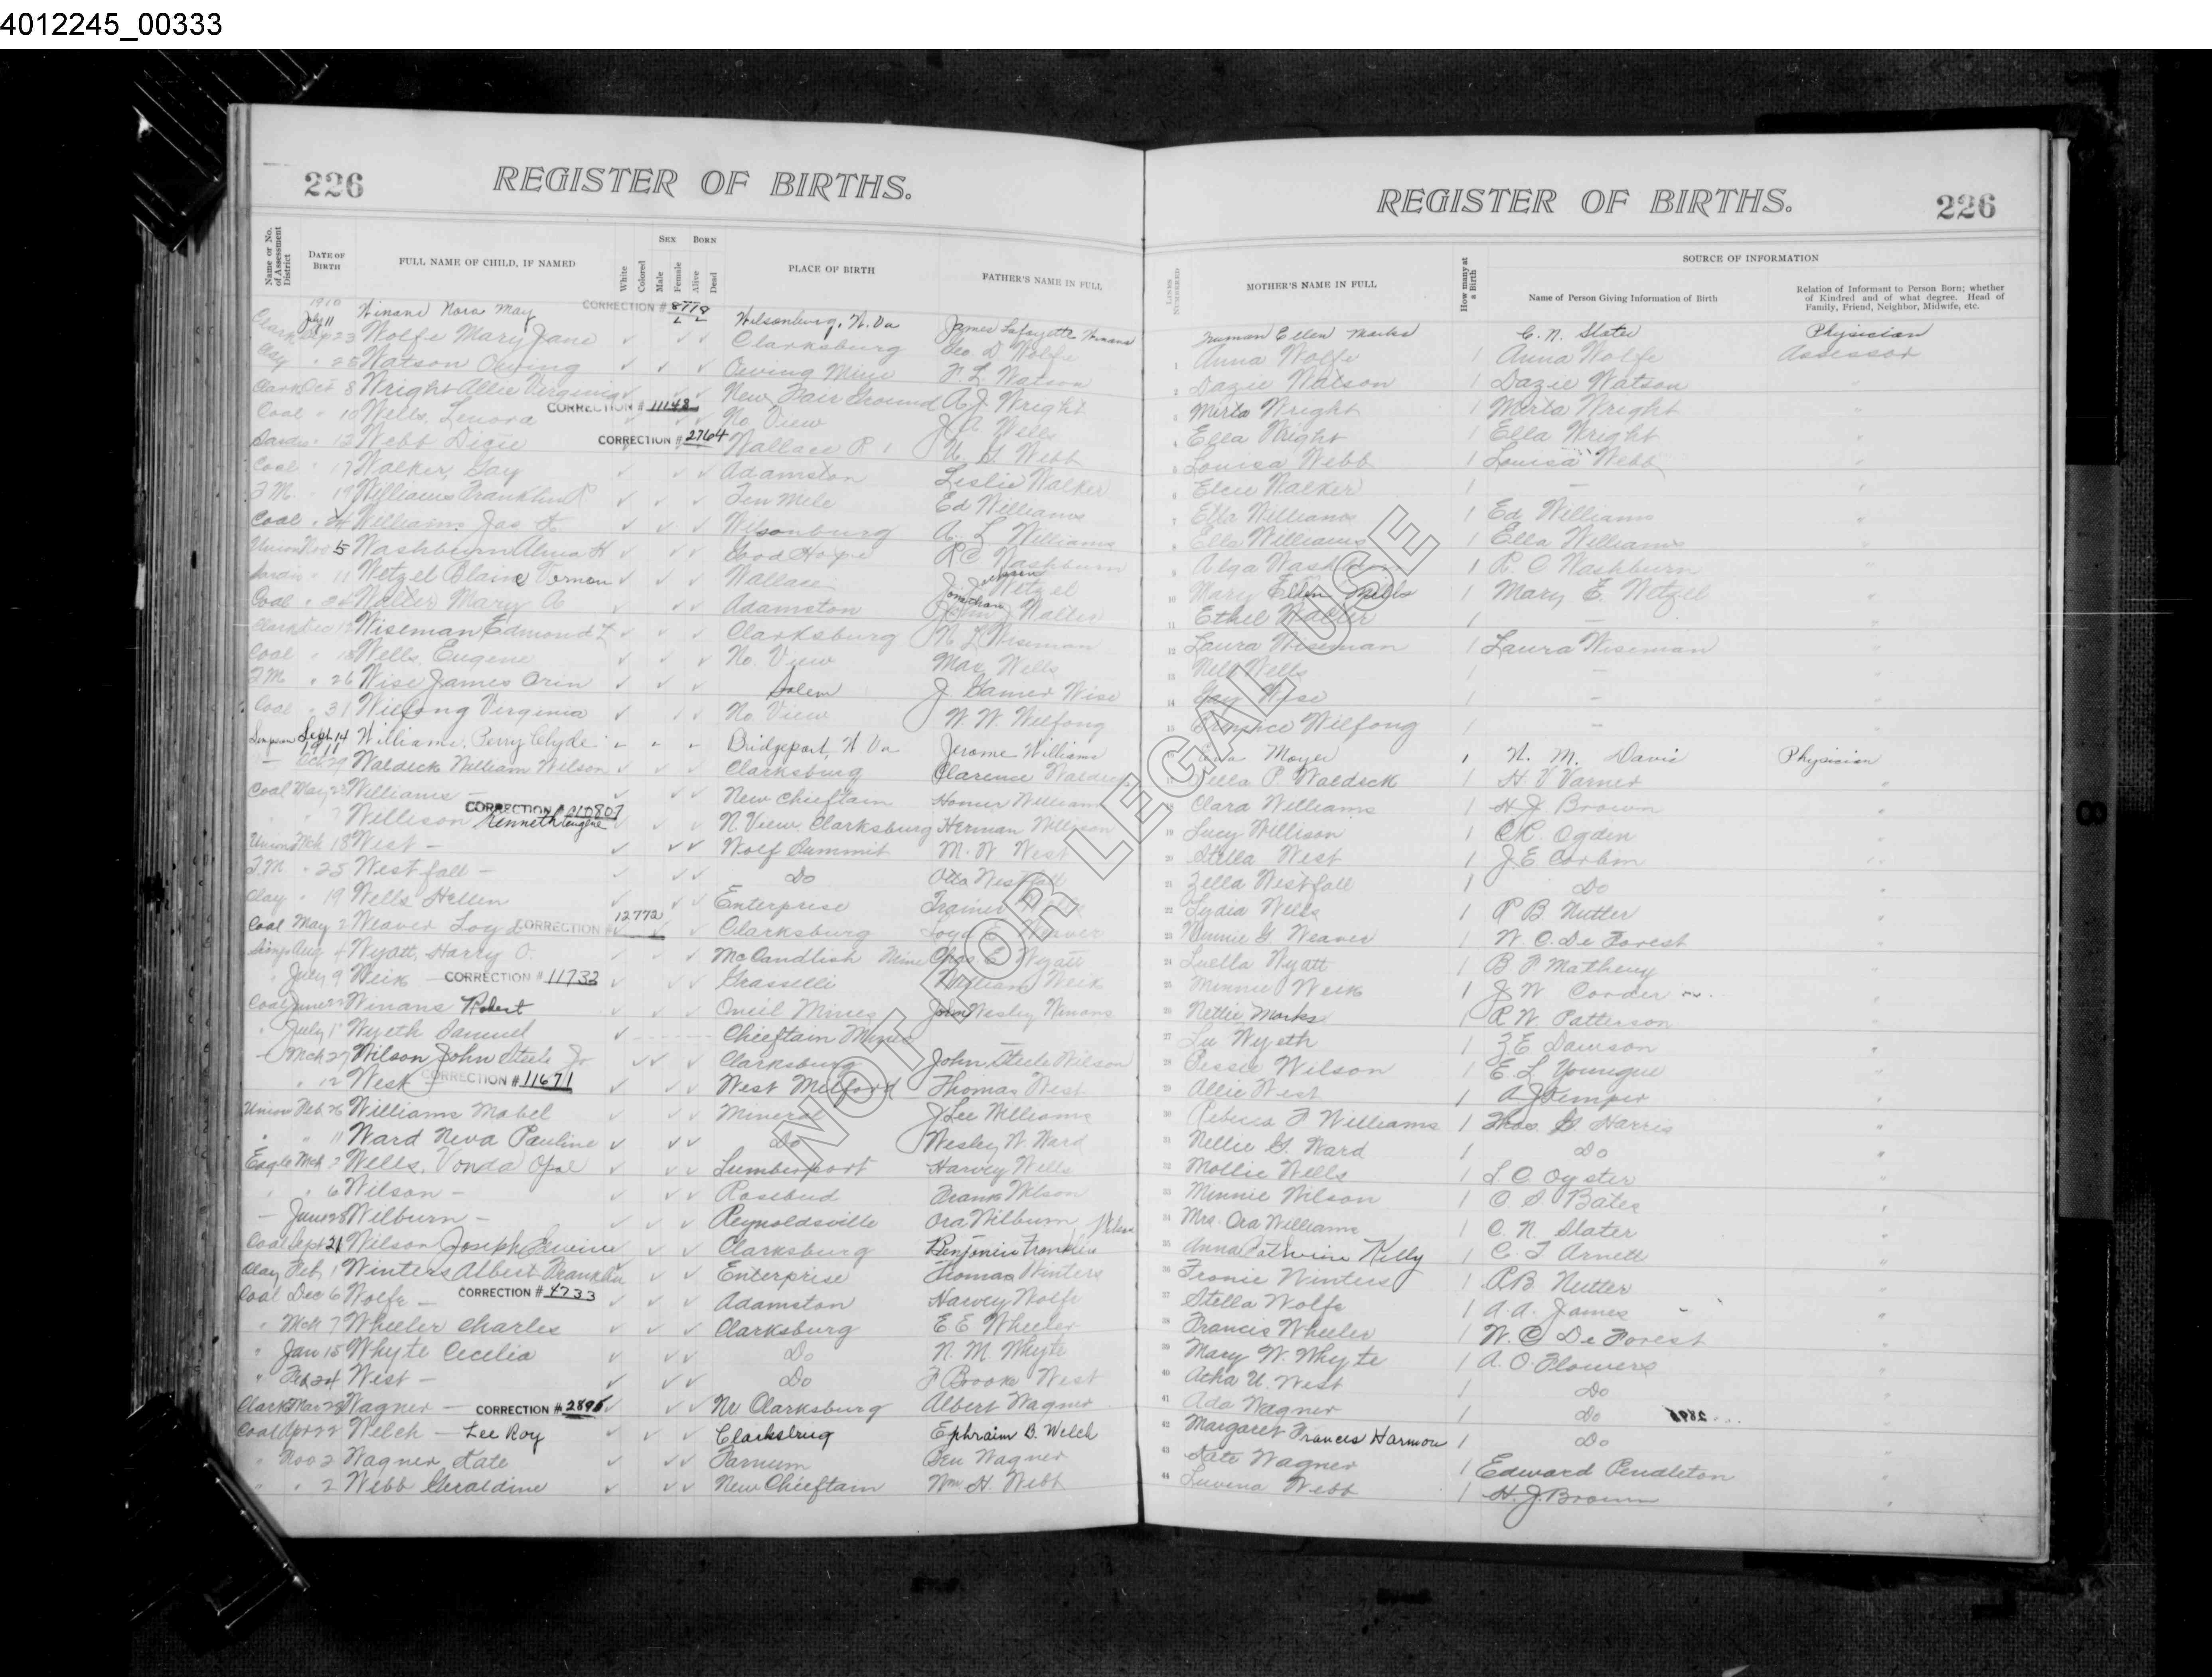 4012245_00333
226 REGISTER OF BIRTHS.
REGISTER OF BIRTHS. 226
Name or No. of Assessment District
DATE OF BIRTH
FULL NAME OF CHILD, IF NAMED
White
Colored
SEX
Male
Female
BORN
Alive
Dead
PLACE OF BIRTH
FATHER'S NAME IN FULL
LINES NUMBERED
MOTHER'S NAME IN FULL
How many at a Birth
SOURCE OF INFORMATION
Name of Person Giving Information of Birth
Relation of Informant to Person Born; whether of Kindred and of what degree. Head of Family, Friend, Neighbor, Midwife, etc.
1910 July 11 Winans Nora May CORRECTION # 8778 Wilsonburg, W. Va James Lafayette Winans Ellen Marks C. N. Slater Physician
Clark Sep 23 Wolfe Mary Jane Clarksburg Geo D Wolfe 1 Anna Wolfe 1 Anna Wolfe Assessor
Clay " 25 Watson F. L. Watson 2 Dazie Watson 1 Dazie Watson
Clark Oct 8 Wright Allie Virginia New Fair Ground A. J. Wright 3 Mirta Wright 1 Mirta Wright
Coal " 10 Wells, Lenora CORRECTION # 11148 No. View J. A. Wells 4 Ella Wright 1 Ella Wright
Sardis " 12 Webb Dicie CORRECTION # 2764 Wallace R 1 U. G. Webb 5 Louisa Webb 1 Louisa Webb
Coal " 17 Walker, Gay Adamston Leslie Walker 6 Elcie Walker 1 —
T. M. " 19 Williams Franklin R Ten Mile Ed Williams 7 Etta Williams 1 Ed Williams
Coal " 24 Williams Jas A. Wilsonburg A. L. Williams 8 Ella Williams 1 Ella Williams
Union Nov 5 Washburn Alma H Good Hope R C Washburn 9 1 R. C. Washburn
Sardis " 11 Wetzel Blaine Vernon Wallace Wetzel 10 Mary Ellen Mills 1 Mary E. Wetzel
Coal " 24 Walter Mary A Adamston Walter 11 Ethel Walter 1 —
Clark Dec 12 Wiseman Edmond L Clarksburg Wiseman 12 Laura Wiseman 1 Laura Wiseman
Coal " 18 Wells, Eugene No. View Max Wells 13 Nell Wells 1 —
T. M. " 26 Wise James Orin Salem J Garner Wise 14 Gay Wise 1 —
Coal " 31 Wilfong Virginia No. View W. W. Wilfong 15 Wilfong 1 —
Simpson Sept 14 1911 Williams, Perry Clyde Bridgeport, W Va Jerome Williams Moyer 1 N. M. Davis Physician
— Oct 29 Waldeck William Wilson Clarksburg Clarence Waldeck 17 P. Waldeck 1 H V Varner
Coal May 28 Williams — New Chieftain Homer Williams Clara Williams 1 H J Brown
Willison Kenneth Eugene CORRECTION # 10807 N. View Clarksburg Herman Willison 19 Lucy Willison 1 Ogden
Union Mch 18 West — Wolf Summit M. W. West 20 Stella West 1 J. E. Corbin
T. M. " 25 Westfall — Do Otto Westfall 21 Zella Westfall 1 Do
Clay " 19 Wells Hellen Enterprise 22 Lydia Wells 1 R B. Nutter
Coal May 2 Weaver Loyd CORRECTION # 12772 Clarksburg Loyd E Weaver 23 Minnie G Weaver 1 W. C. De Forest
Simps Aug 4 Wyatt, Harry O. McCandlish Mine Chas C Wyatt 24 Luella Wyatt 1 B P Matheny
" July 9 Weik — CORRECTION # 11732 Grasselli William Weik 25 Minnie Weik 1 J W Corder
Coal June 22 Winans Robert Oneil Mines John Wesley Winans 26 Nettie Marks 1 R. W. Patterson
" July 1 Wyeth Samuel Chieftain Mines 27 Lu Wyeth 1 Z. E Dawson
— Mch 27 Wilson John Steele Jr Clarksburg John Steele Wilson 28 Bessie Wilson 1 E. L. Youngue
" 12 West CORRECTION # 11671 West Milford Thomas West 29 Allie West 1 A. J. Kemper
Union Feb 26 Williams Mabel Mineral J Lee Williams 30 Rebecca F Williams 1 Thos. G Harris
" " 11 Ward Neva Pauline Do Wesley W. Ward 31 Nellie G. Ward 1 Do
Eagle Mch 3 Wells, Vonda Opal Lumberport Harvey Wells 32 Mollie Wells 1 L. O. Oyster
" " 6 Wilson — Rosebud Frank Wilson 33 Minnie Wilson 1 O S Bates
— Jan 28 Wilburn — Reynoldsville Ora Wilburn 34 Mrs. Ora Williams 1 C. N. Slater
Coal Sept 21 Wilson Joseph Clarksburg Benjamin Franklin Wilson 35 Anna Catherine Kelly 1 C. T Arnett
Clay Feb 1 Winters Albert Franklin Enterprise Thomas Winters 36 Fronie Winters 1 R B. Nutter
Coal Dec 6 Wolfe — CORRECTION # 4733 Adamston Harvey Wolfe 37 Stella Wolfe 1 A. A. James
" Mch 7 Wheeler Charles Clarksburg E E Wheeler 38 Francis Wheeler 1 W. C. De Forest
" Jan 15 Whyte Cecelia Do N. M Whyte 39 Mary W. Whyte 1 A. O. Flowers
" Feb 24 West — Do F Brooke West 40 Atha U. West 1 Do
Clark Mar 28 Wagner — CORRECTION # 2896 Nr Clarksburg Albert Wagner 41 Ada Wagner 1 Do
Coal Apr 22 Welch — Lee Roy Clarksburg Ephraim B. Welch 42 Margaret Frances Harmon 1 Do
" Nov 2 Wagner Kate Farnum Ben Wagner 43 Kate Wagner 1 Edward Pendleton
" " 2 Webb Geraldine New Chieftain Wm. H. Webb 44 Luvena Webb 1 H. J. Brown
NOT FOR LEGAL USE